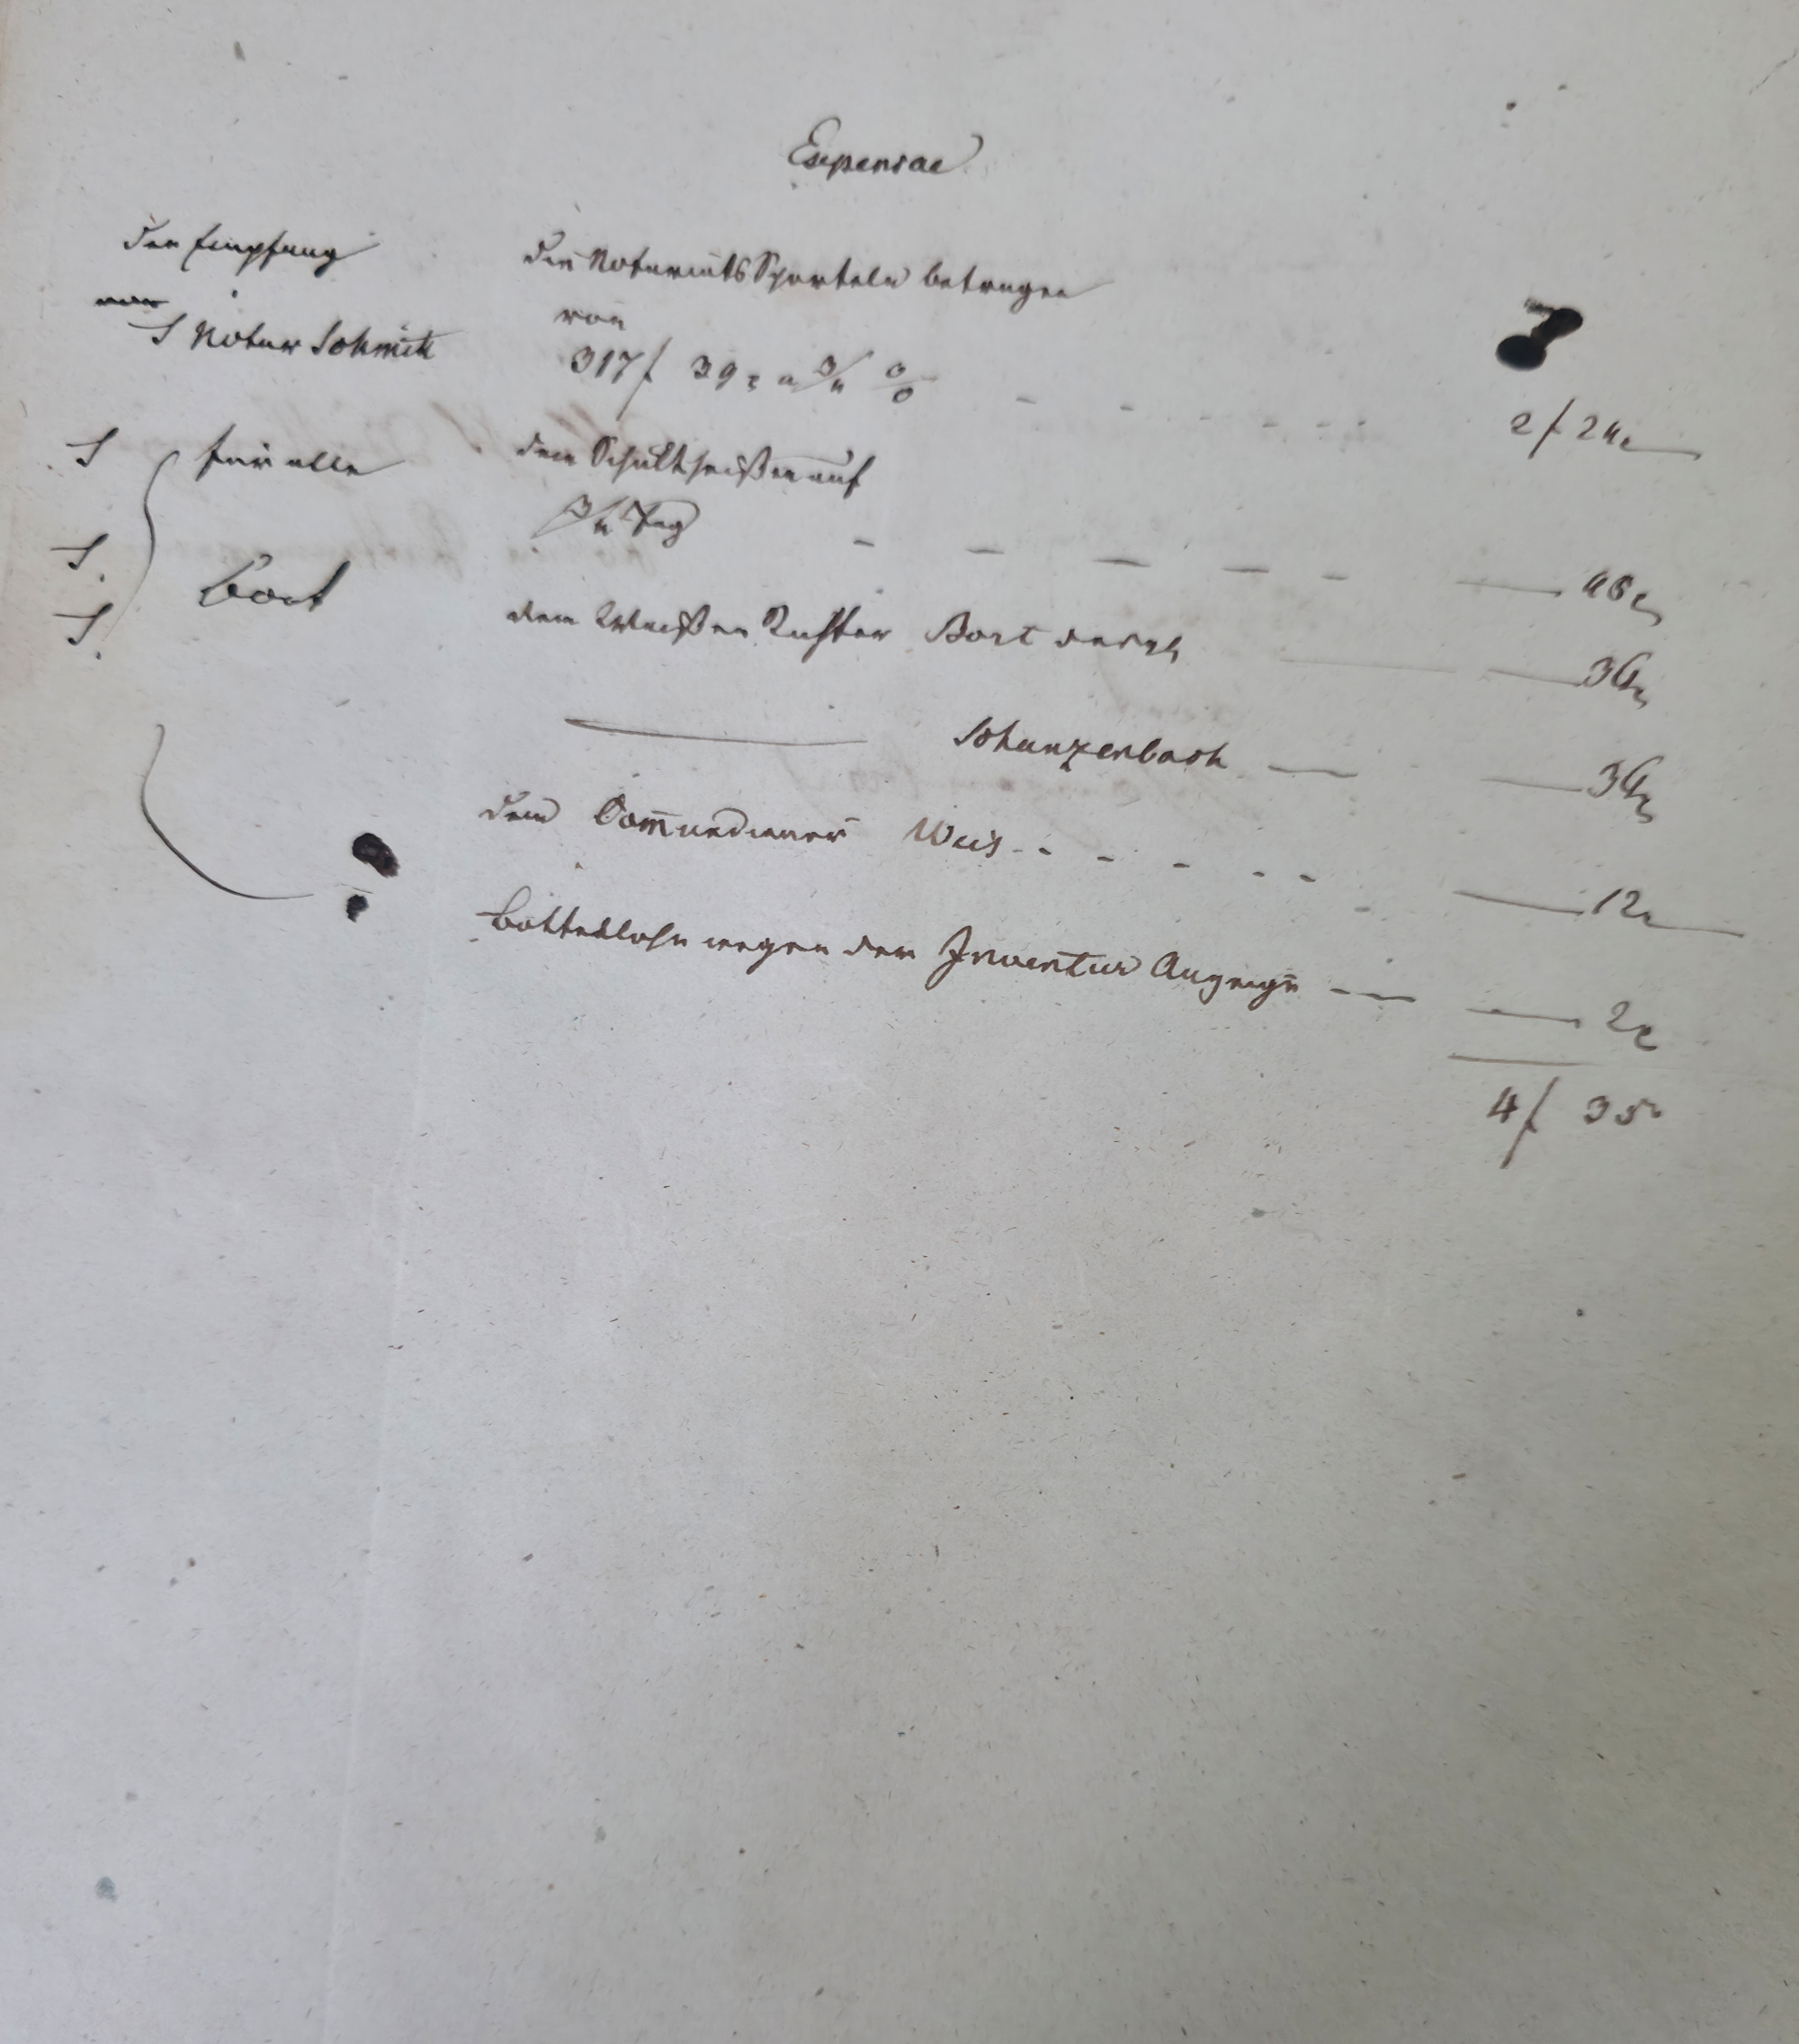 Expensae
den Empfang
T. Notar Schmidt
die Notariats Sporteln betragen
von
317 f 39 x a 3/4 %
2 f 24 x
T. für alle
dem Schultheißen auf
3/4 Tag
45 x
T.
T.
Bort
dem Waißen Richter Bort desgl.
36 x
Schanzenbach
36 x
dem Commundiener Weis
12 x
Bottenlohn wegen der Inventur Anzeige
2 x
4 f 35